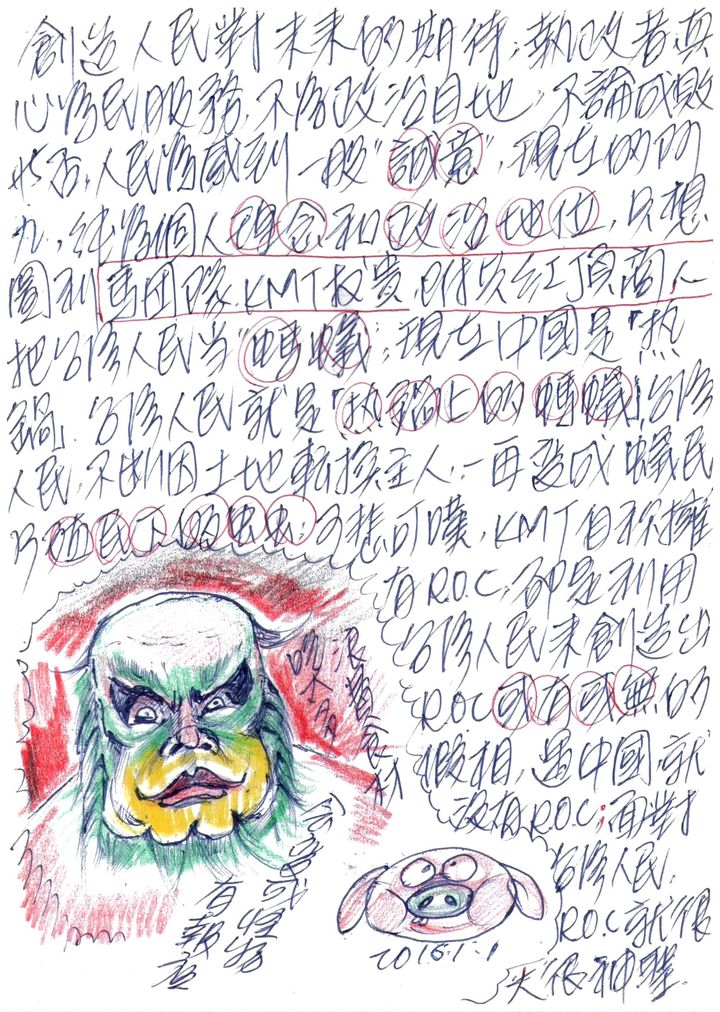 創造人民對未來的期待；執政者真
心為民服務，不為政治目地，不論成敗
與否，人民將感到一股"誠意"，現在的阿
九，純為個人理念和政治地位，只想
圖利馬團隊、KMT权貴，附炎紅頂商人
把台灣人民当"螞蟻"；現在中國是「热
鍋」，台灣人民就是「热鍋上的螞蟻」台灣
人民，不斷因土地轉換主人，一再變成蟻民
与殖民下的虫虫；可悲可嘆，KMT自称擁
有R.O.C；卻是利用
台灣人民來創造出
R.O.C或有或無的
假相，遇中國就
沒有R.O.C；面對
台灣人民，
R.O.C就很
大很神聖
吸太多
怪物
有報应
2016.1.1